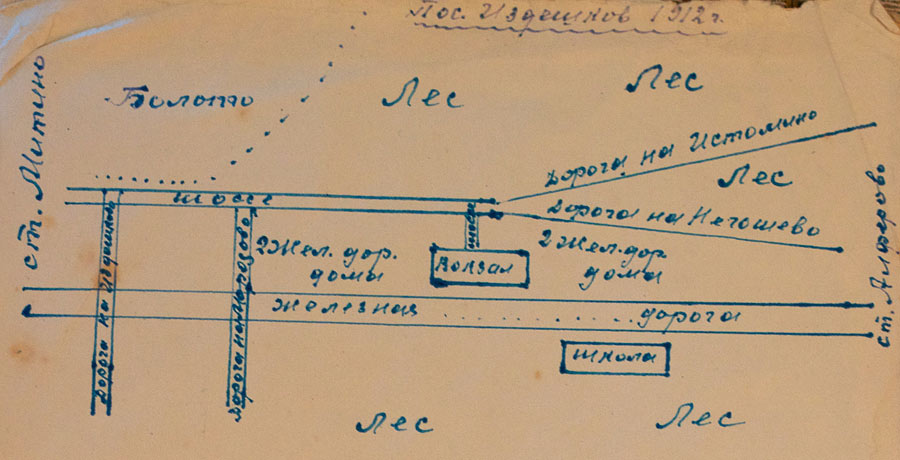 Пос. Издешков 1912г.
ст. Митино
Болото
Лес
Лес
Дорога на Истомино
Лес
шоссе
Дорога на Негошево
Дорога на Издешково
Дорога на Морозово
2 Жел. дор.
дома
шоссе
Вокзал
2 Жел. дор.
дома
ст. Алферово
железная дорога
школа
Лес
Лес